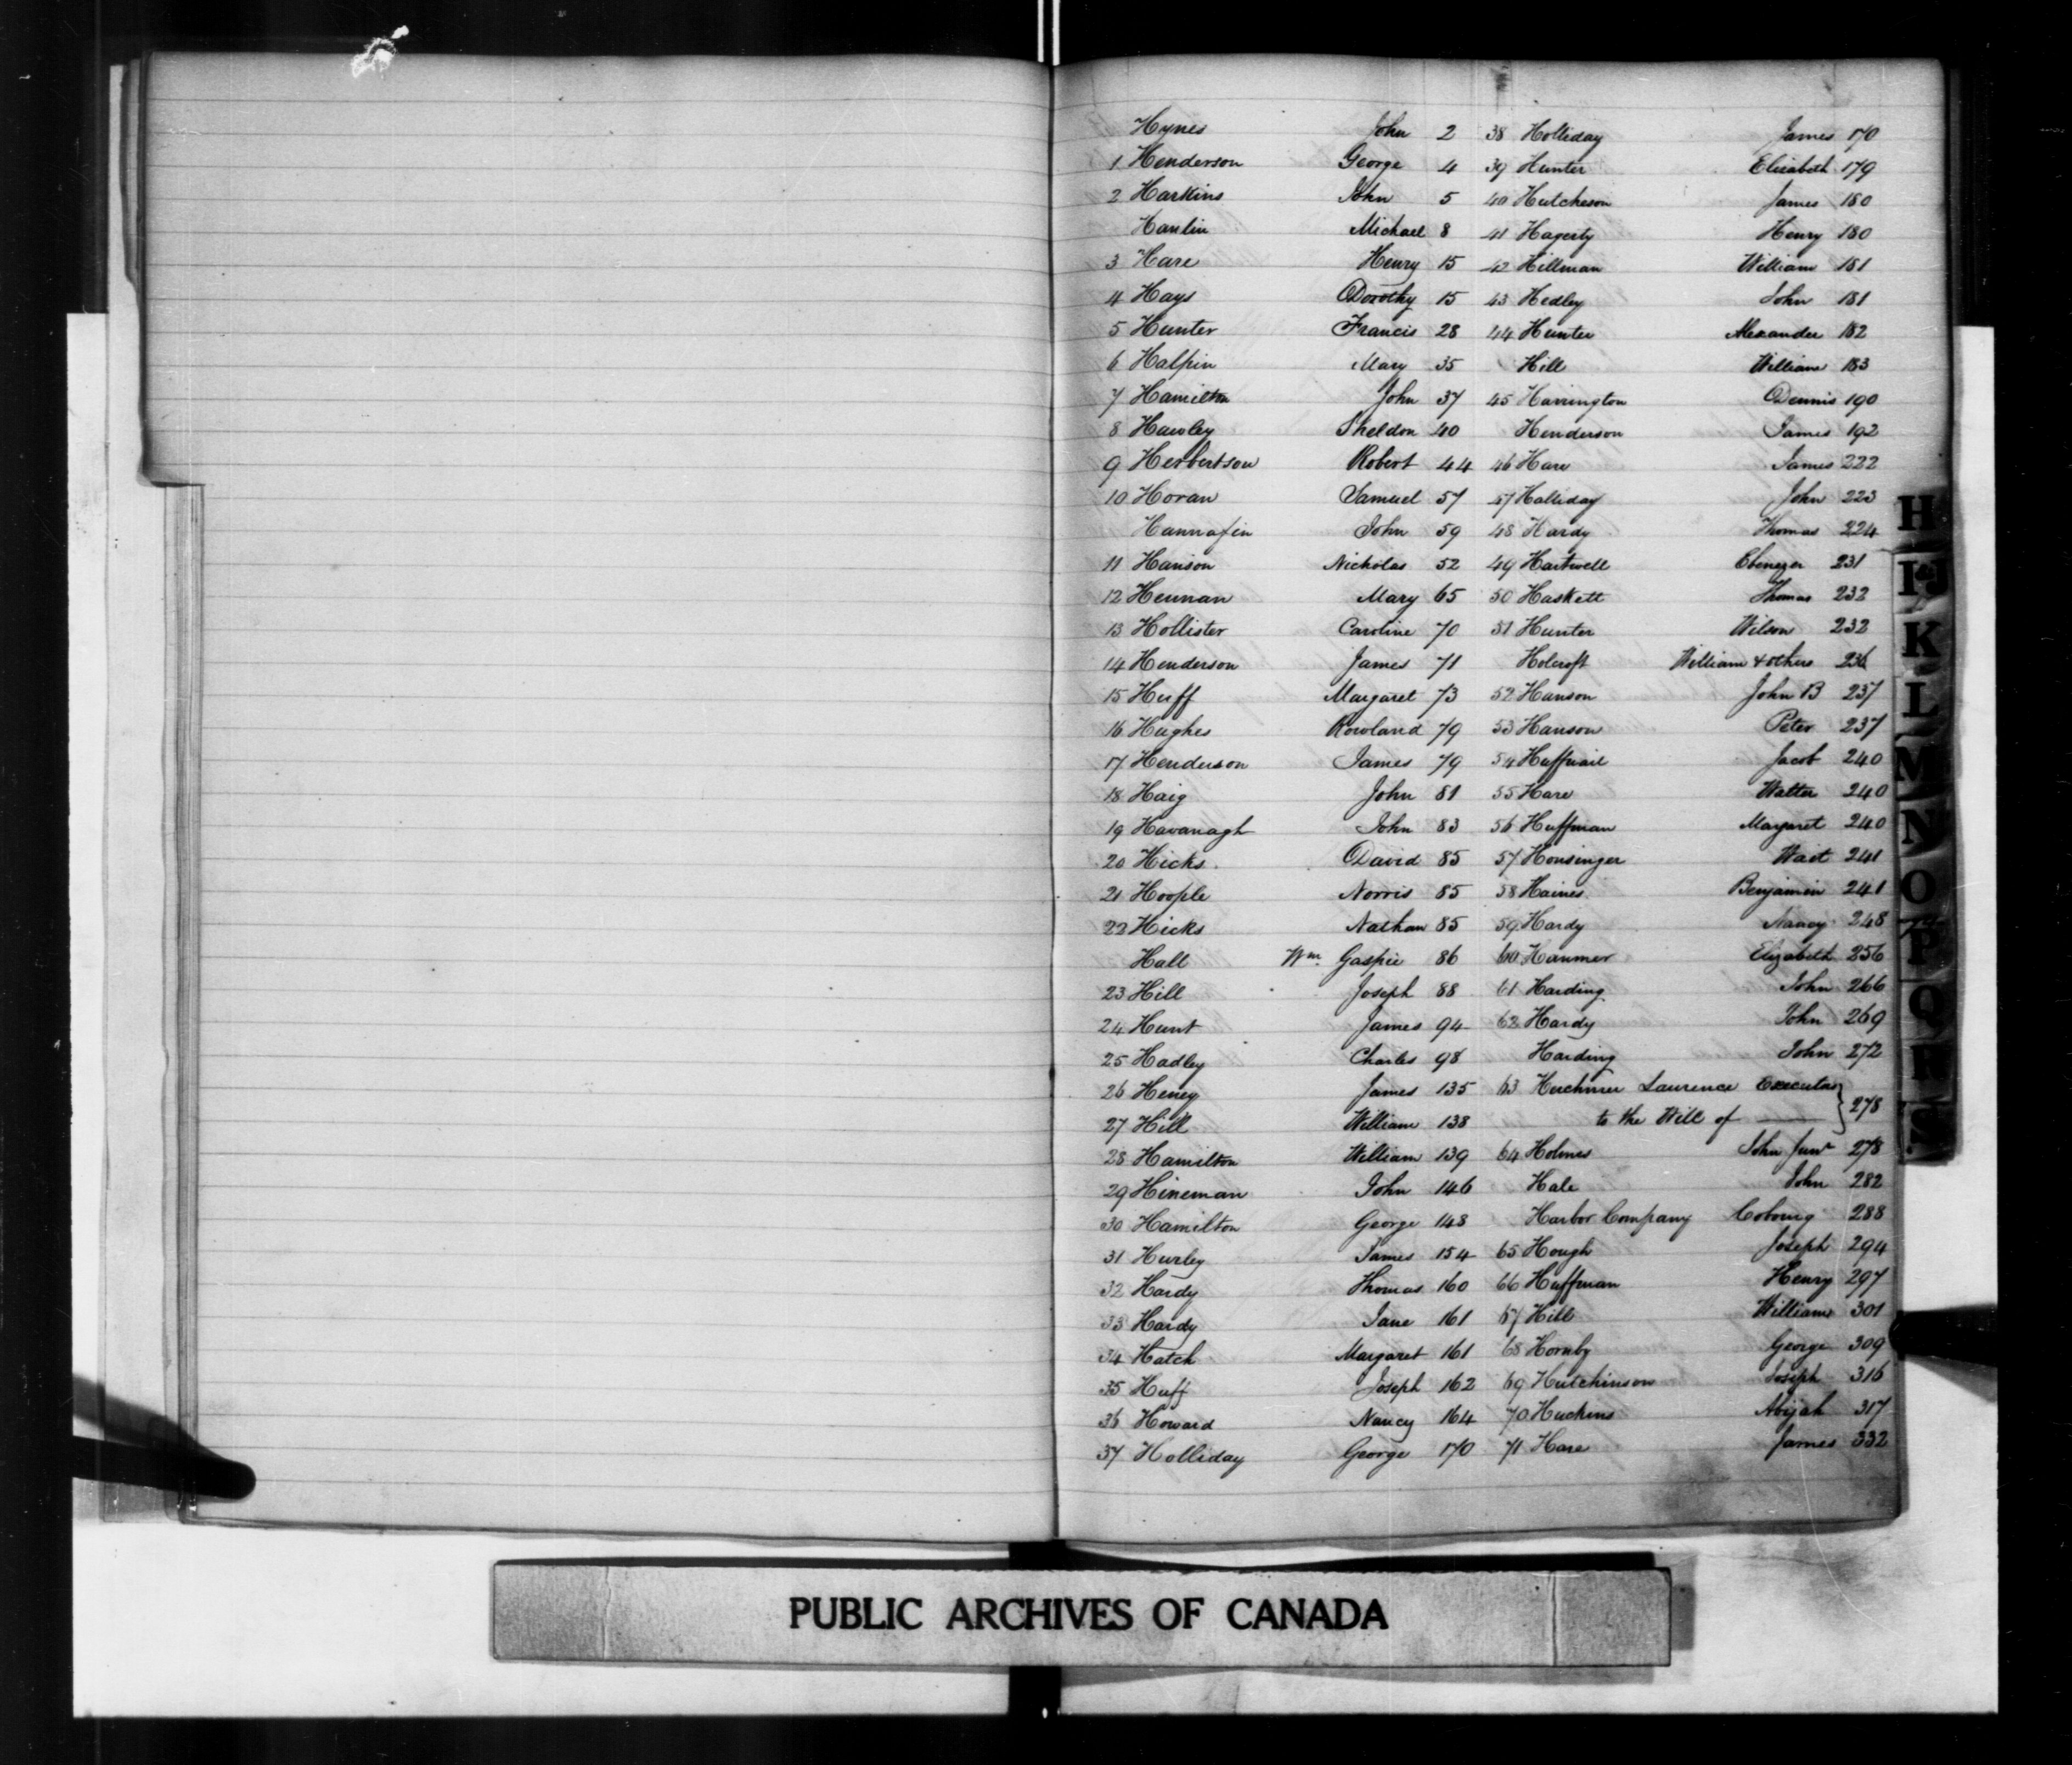 Hynes John 2
1 Henderson George 4
2 Harkins John 5
Hanlin Michael 8
3 Hare Henry 15
4 Hays Dorothy 15
5 Hunter Francis 28
6 Halpin Mary 35
7 Hamilton John 37
8 Hawley Sheldon 40
9 Herbertson Robert 44
10 Horan Samuel 57
Hannafin John 59
11 Hanson Nicholas 52
12 Heenan Mary 65
13 Hollister Caroline 70
14 Henderson James 71
15 Huff Margaret 73
16 Hughes Rowland 79
17 Henderson James 79
18 Haig John 81
19 Havanagh John 83
20 Hicks David 85
21 Hoople Norris 85
22 Hicks Nathan 85
Hall Wm Gaspie 86
23 Hill Joseph 88
24 Hunt James 94
25 Hadley Charles 98
26 Heney James 135
27 Hill William 138
28 Hamilton William 139
29 Hineman John 146
30 Hamilton George 148
31 Hurley James 154
32 Hardy Thomas 160
33 Hardy Jane 161
34 Hatch Margaret 161
35 Huff Joseph 162
36 Howard Nancy 164
37 Holliday George 170
38 Holliday James 170
39 Hunter Elizabeth 179
40 Hutcheson James 180
41 Hagerty Henry 180
42 Hillman William 181
43 Hedley John 181
44 Hunter Alexander 182
Hill William 183
45 Harrington Dennis 190
Henderson James 192
46 Hare James 222
47 Halliday John 223
48 Hardy Thomas 224
49 Hartwell Ebenezer 231
50 Haskett Thomas 232
51 Hunter Wilson 232
Holcroft William & others 236
52 Hanson John B 237
53 Hanson Peter 237
54 Huffnail Jacob 240
55 Hare Walter 240
56 Huffman Margaret 240
57 Honsinger Wait 241
58 Haines Benjamin 241
59 Hardy Nancy 248
60 Hanmer Elizabeth 256
61 Harding John 266
62 Hardy John 269
Harding John 272
63 Laurence Executor
to the Will of 278
64 Holmes John Junr 278
Hale John 282
Harbor Company Cobourg 288
65 Hough Joseph 294
66 Huffman Henry 297
67 Hill William 301
68 Hornby George 309
69 Hutchinson Joseph 316
70 Huckins Abijah 317
71 Hare James 332
H
K
L
M
N
O
P
Q
R
S
PUBLIC ARCHIVES OF CANADA